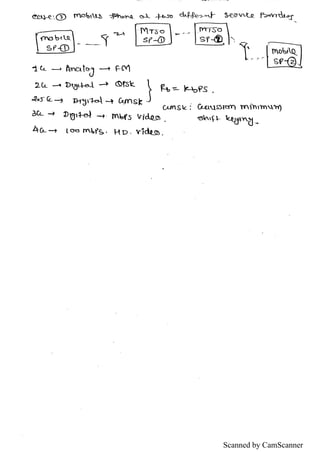 case:① mobiles phone at two different service Provider.
mobile SP-① MTSO SP-① MTSO SP-② mobile SP-②
1G → Analog → FM
2G → Digital → QPSK } Rb = kbps.
2.5G → Digital → GMSK
GMSK: Gaussian minimum shift keying.
3G → Digital → mbps video.
4G → 100 mbps. HD. video.
Scanned by CamScanner